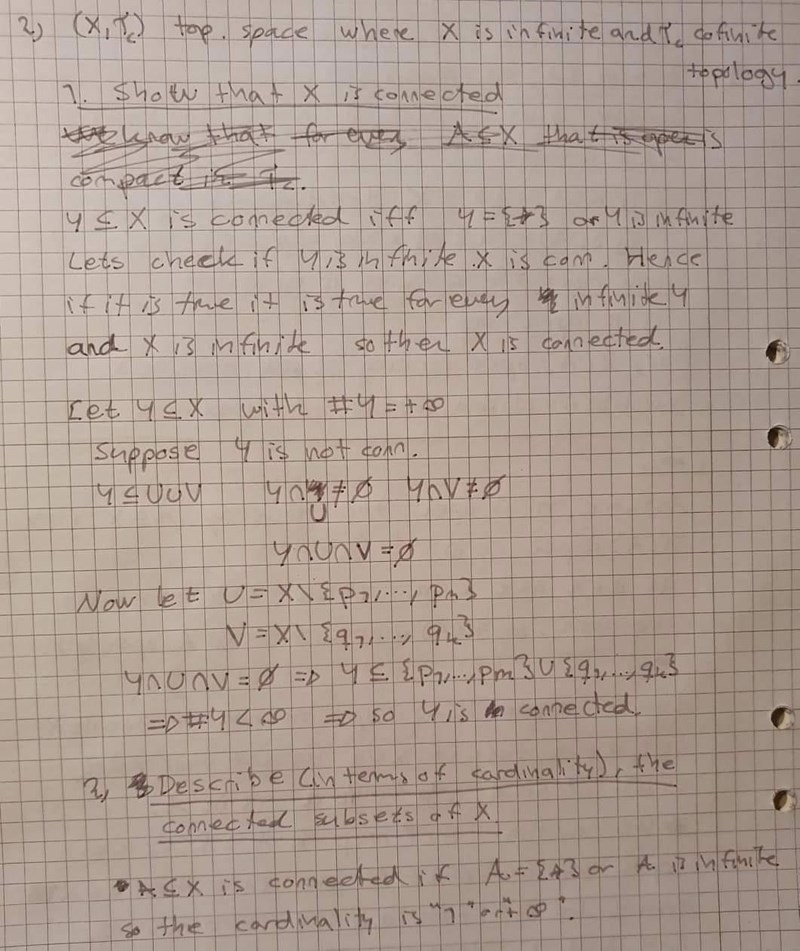 2) (X, τc) top. space where X is infinite and τc cofinite
topology.
1. Show that X is connected
know that for every A ⊆ X that is open is
compact in τc.
Y ⊆ X is connected iff Y = {*} or Y is infinite
Lets check if Y is infinite X is conn. Hence
if it is true it is true for every infinite Y
and X is infinite so then X is connected.
Let Y ⊆ X with #Y = +∞
Suppose Y is not conn.
Y ⊆ U∪V Y∩U ≠ ∅ Y∩V ≠ ∅
Y∩U∩V = ∅
Now let U = X\{p1,..., pm}
V = X\{q1,..., qn}
Y∩U∩V = ∅ ⇒ Y ⊆ {p1,...,pm}∪{q1,...,qn}
⇒ #Y < ∞ ⇒ so Y is connected.
2, Describe (in terms of cardinality), the
connected subsets of X
• A ⊆ X is connected if A = {*} or A is infinite
so the cardinality is "1" or "+∞".